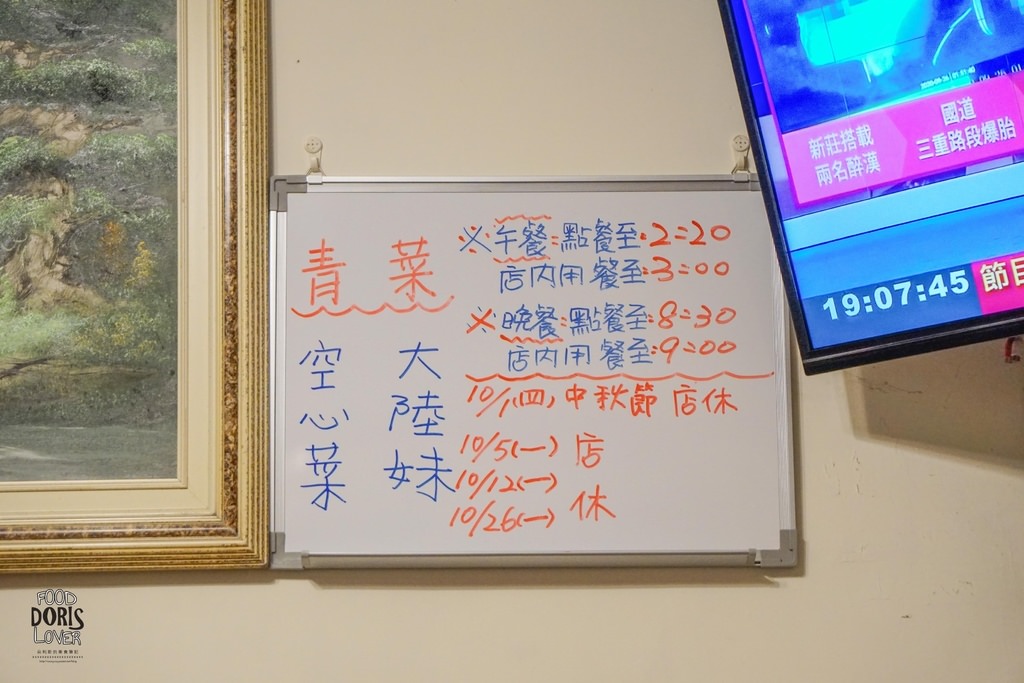 青菜
空心菜
大陸妹
※午餐:點餐至:2:20
店內用餐至:3:00
※晚餐:點餐至:8:30
店內用餐至:9:00
10/1(四)中秋節 店休
10/5(一) 店
10/12(一)
10/26(一) 休
新莊搭載
兩名醉漢
國道
三重路段爆胎
19:07:45
節目
FOOD
DORIS
LOVER